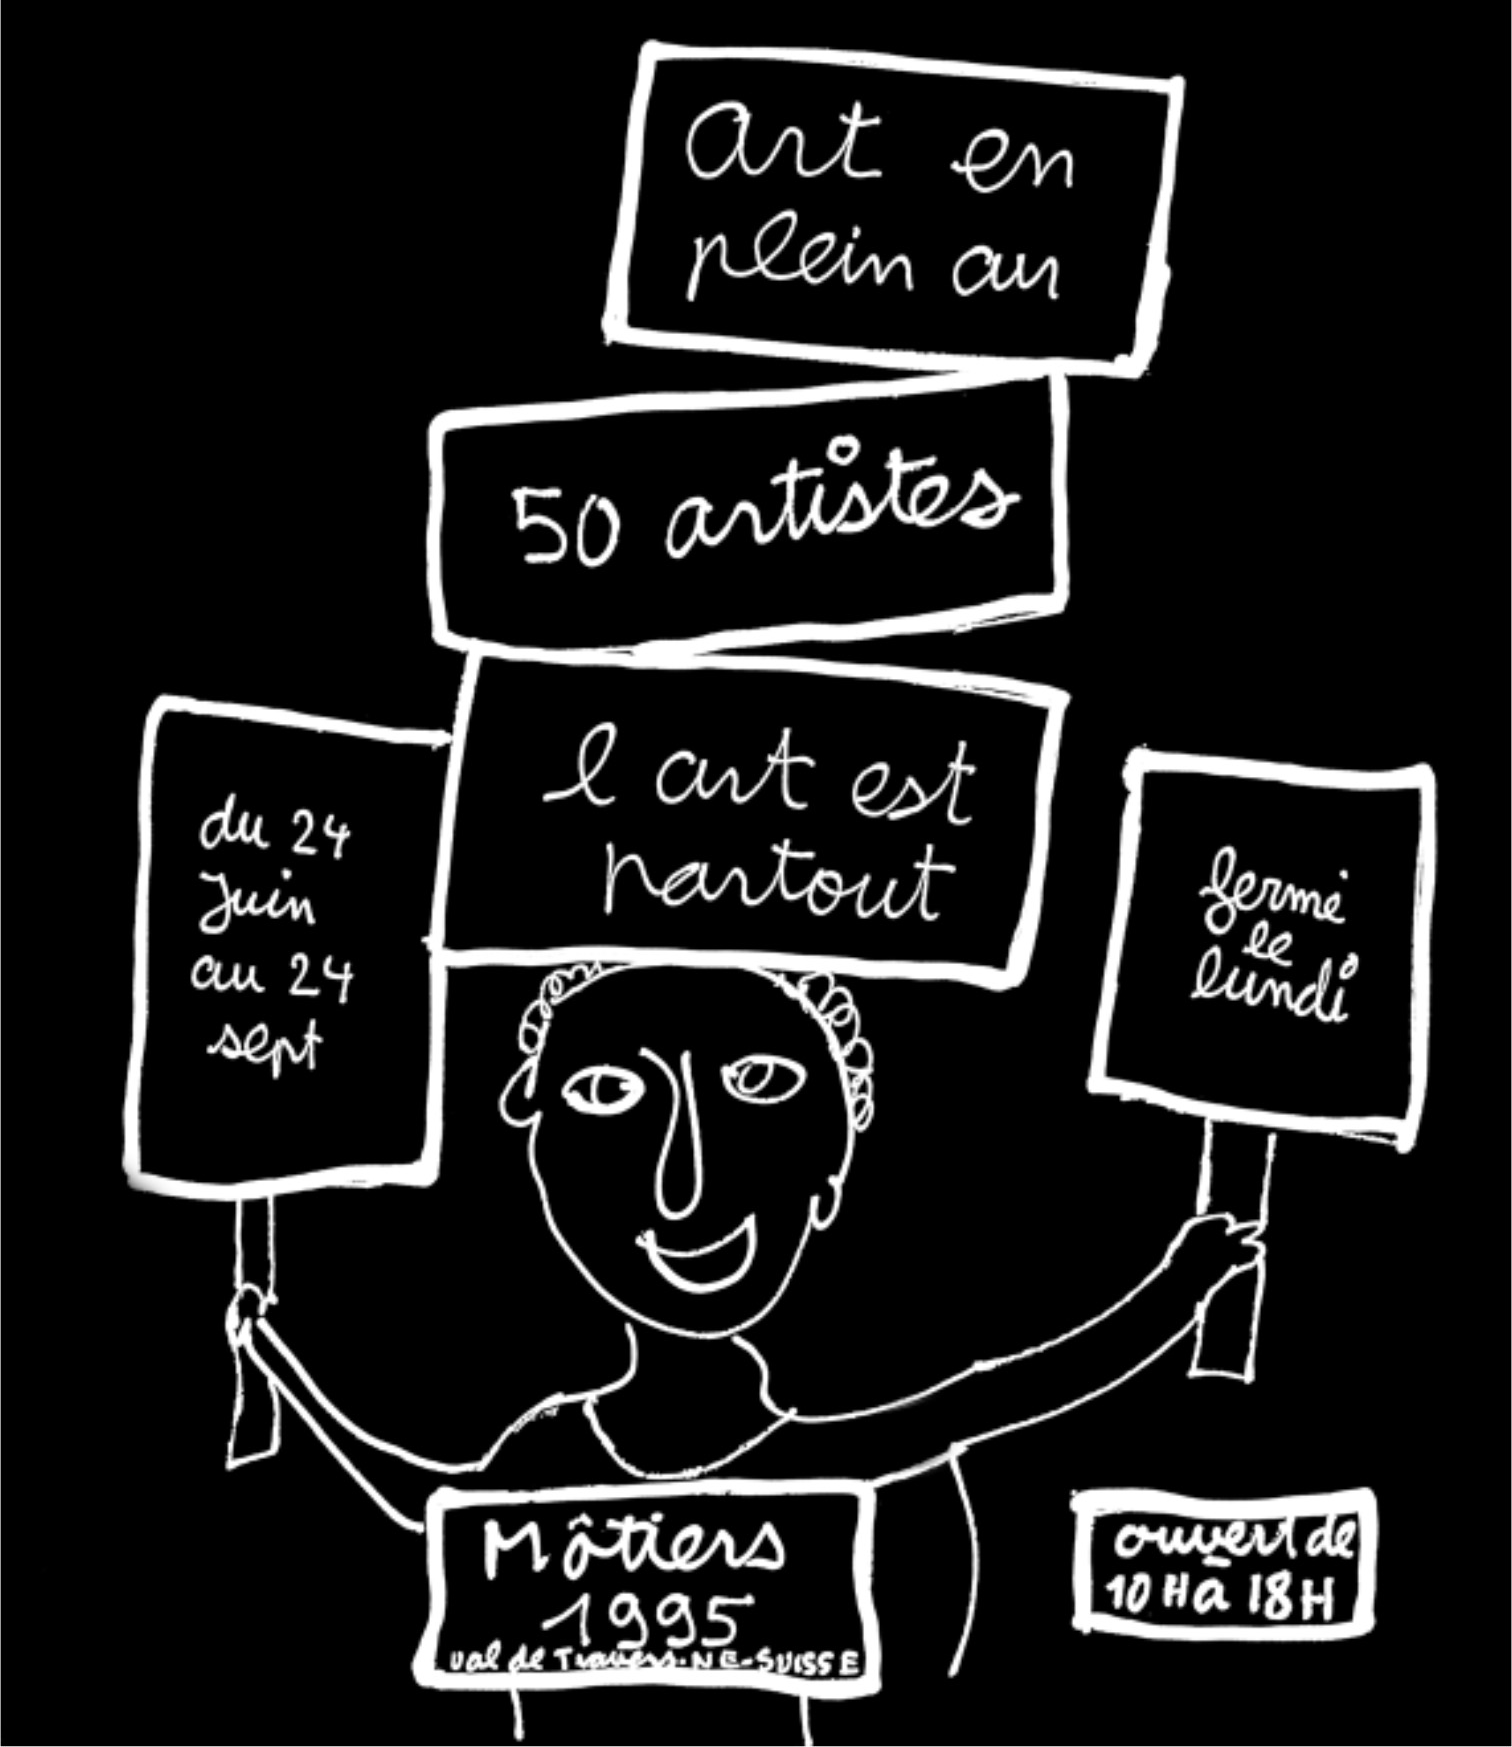 art en
plein air
50 artistes
l art est
partout
du 24
Juin
au 24
sept
fermé
le
lundi
Môtiers
1995
val de Travers.NE-SUISSE
ouvert de
10 H à 18 H